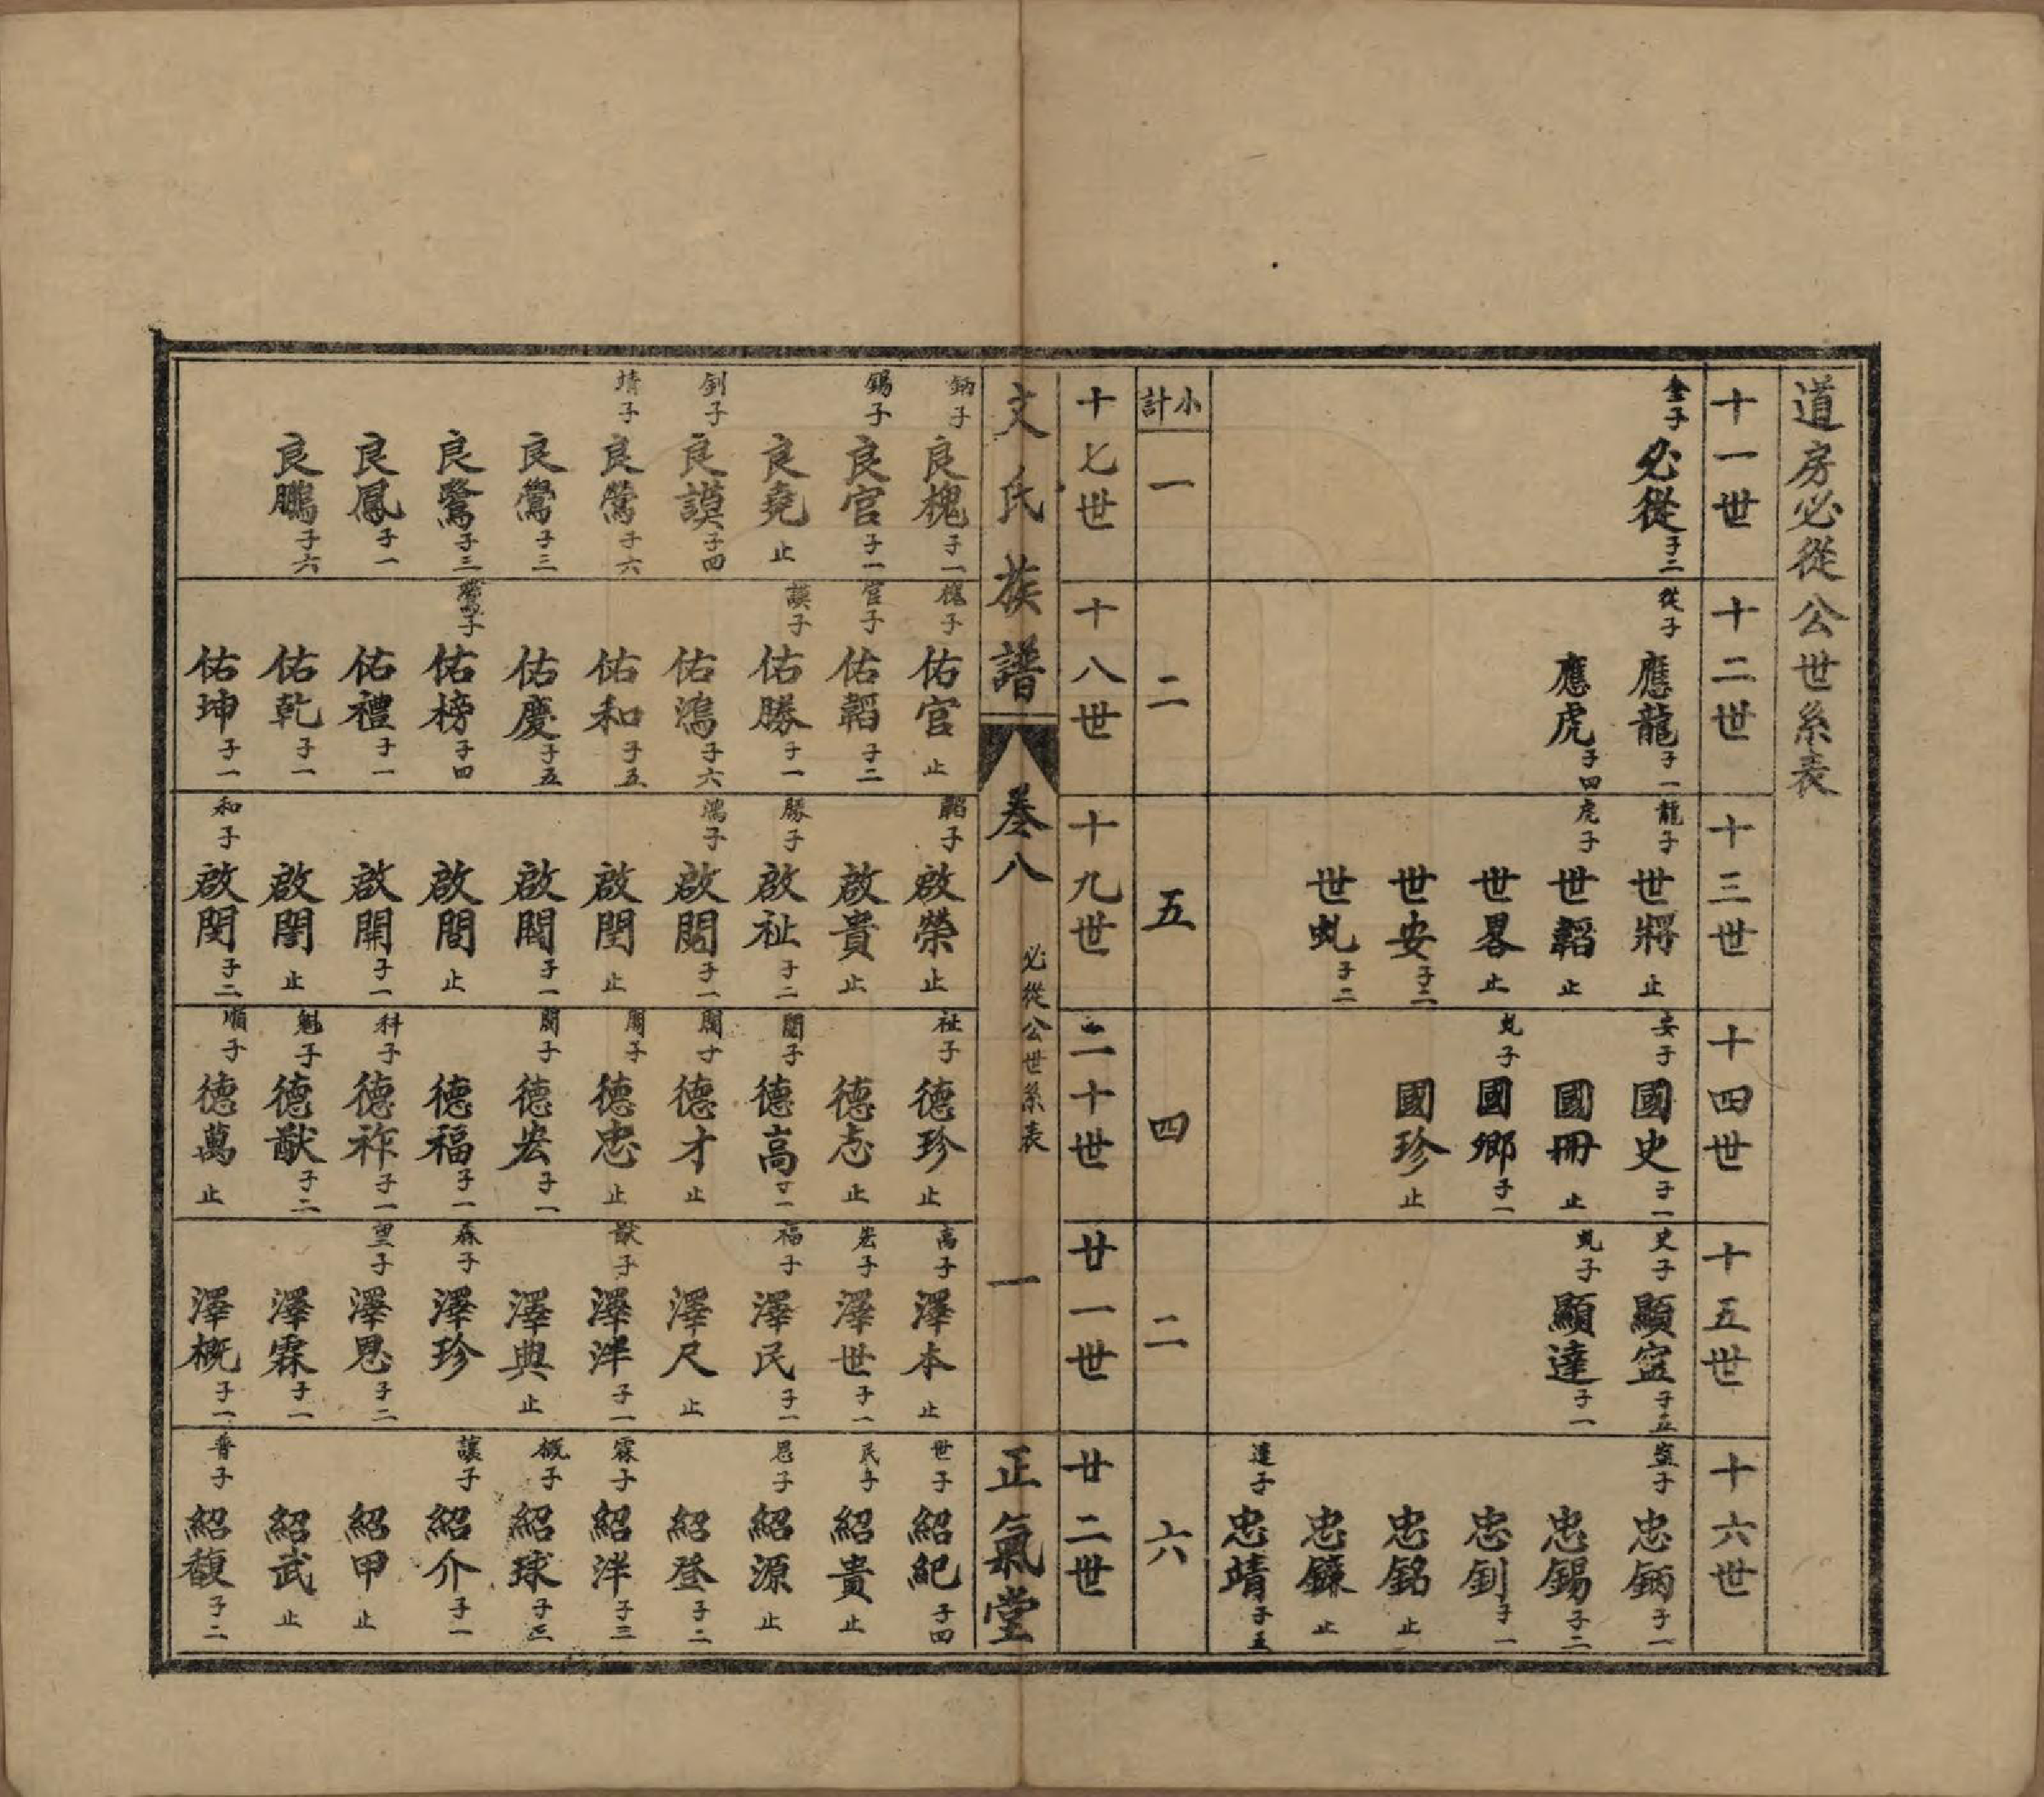 道房必從公世系表
十一世
金子 必從 子二
十二世
從子 應龍 子一
應虎 子四
十三世
龍子 世將 止
虎子 世韜 止
世畧 止
世安 子二
世虬 子二
十四世
安子 國史 子一
國冊 止
虬子 國鄉 子一
國珍 止
十五世
史子 顯寍 子五
顯達 子一
十六世
忠鈵 子一
忠錫 子二
忠釗 子一
忠銘 止
忠鐮 止
達子 忠靖 子五
小計
一
二
五
四
二
六
十七世
十八世
十九世
二十世
廿一世
廿二世
文氏族譜
卷八
必從公世系表
一
正氣堂
鈵子 良槐 子一
錫子 良官 子一
良堯 止
釗子 良謨 子四
靖子 良鶯 子六
良鸞 子三
良鷟 子三
良鳳 子一
良鵬 子六
槐子 佑官 止
官子 佑韜 子二
謨子 佑勝 子一
佑鴻 子六
佑和 子五
佑慶 子五
佑榜 子四
佑禮 子一
佑乾 子一
佑坤 子一
韜子 啟榮 止
啟貴 止
勝子 啟祉 子二
鴻子 啟閣 子一
啟閏 止
啟閶 子一
啟間 止
啟開 子一
啟閨 止
和子 啟閔 子二
祉子 德珍 止
德志 止
德高
德才 止
德忠 止
德宏 子一
德福 子一
科子 德祚 子一
魁子 德猷 子二
順子 德萬 止
高子 澤本 止
宏子 澤世 子一
福子 澤民 子一
澤尺 止
猷子 澤泮 子一
澤典 止
森子 澤珍
望子 澤恩 子二
澤霖 子一
澤概 子一
世子 紹紀 子四
民子 紹貴 止
恩子 紹源 止
紹登 子二
霖子 紹洋 子三
概子 紹球 子三
讓子 紹介 子一
紹甲 止
紹武 止
普子 紹馥 子二